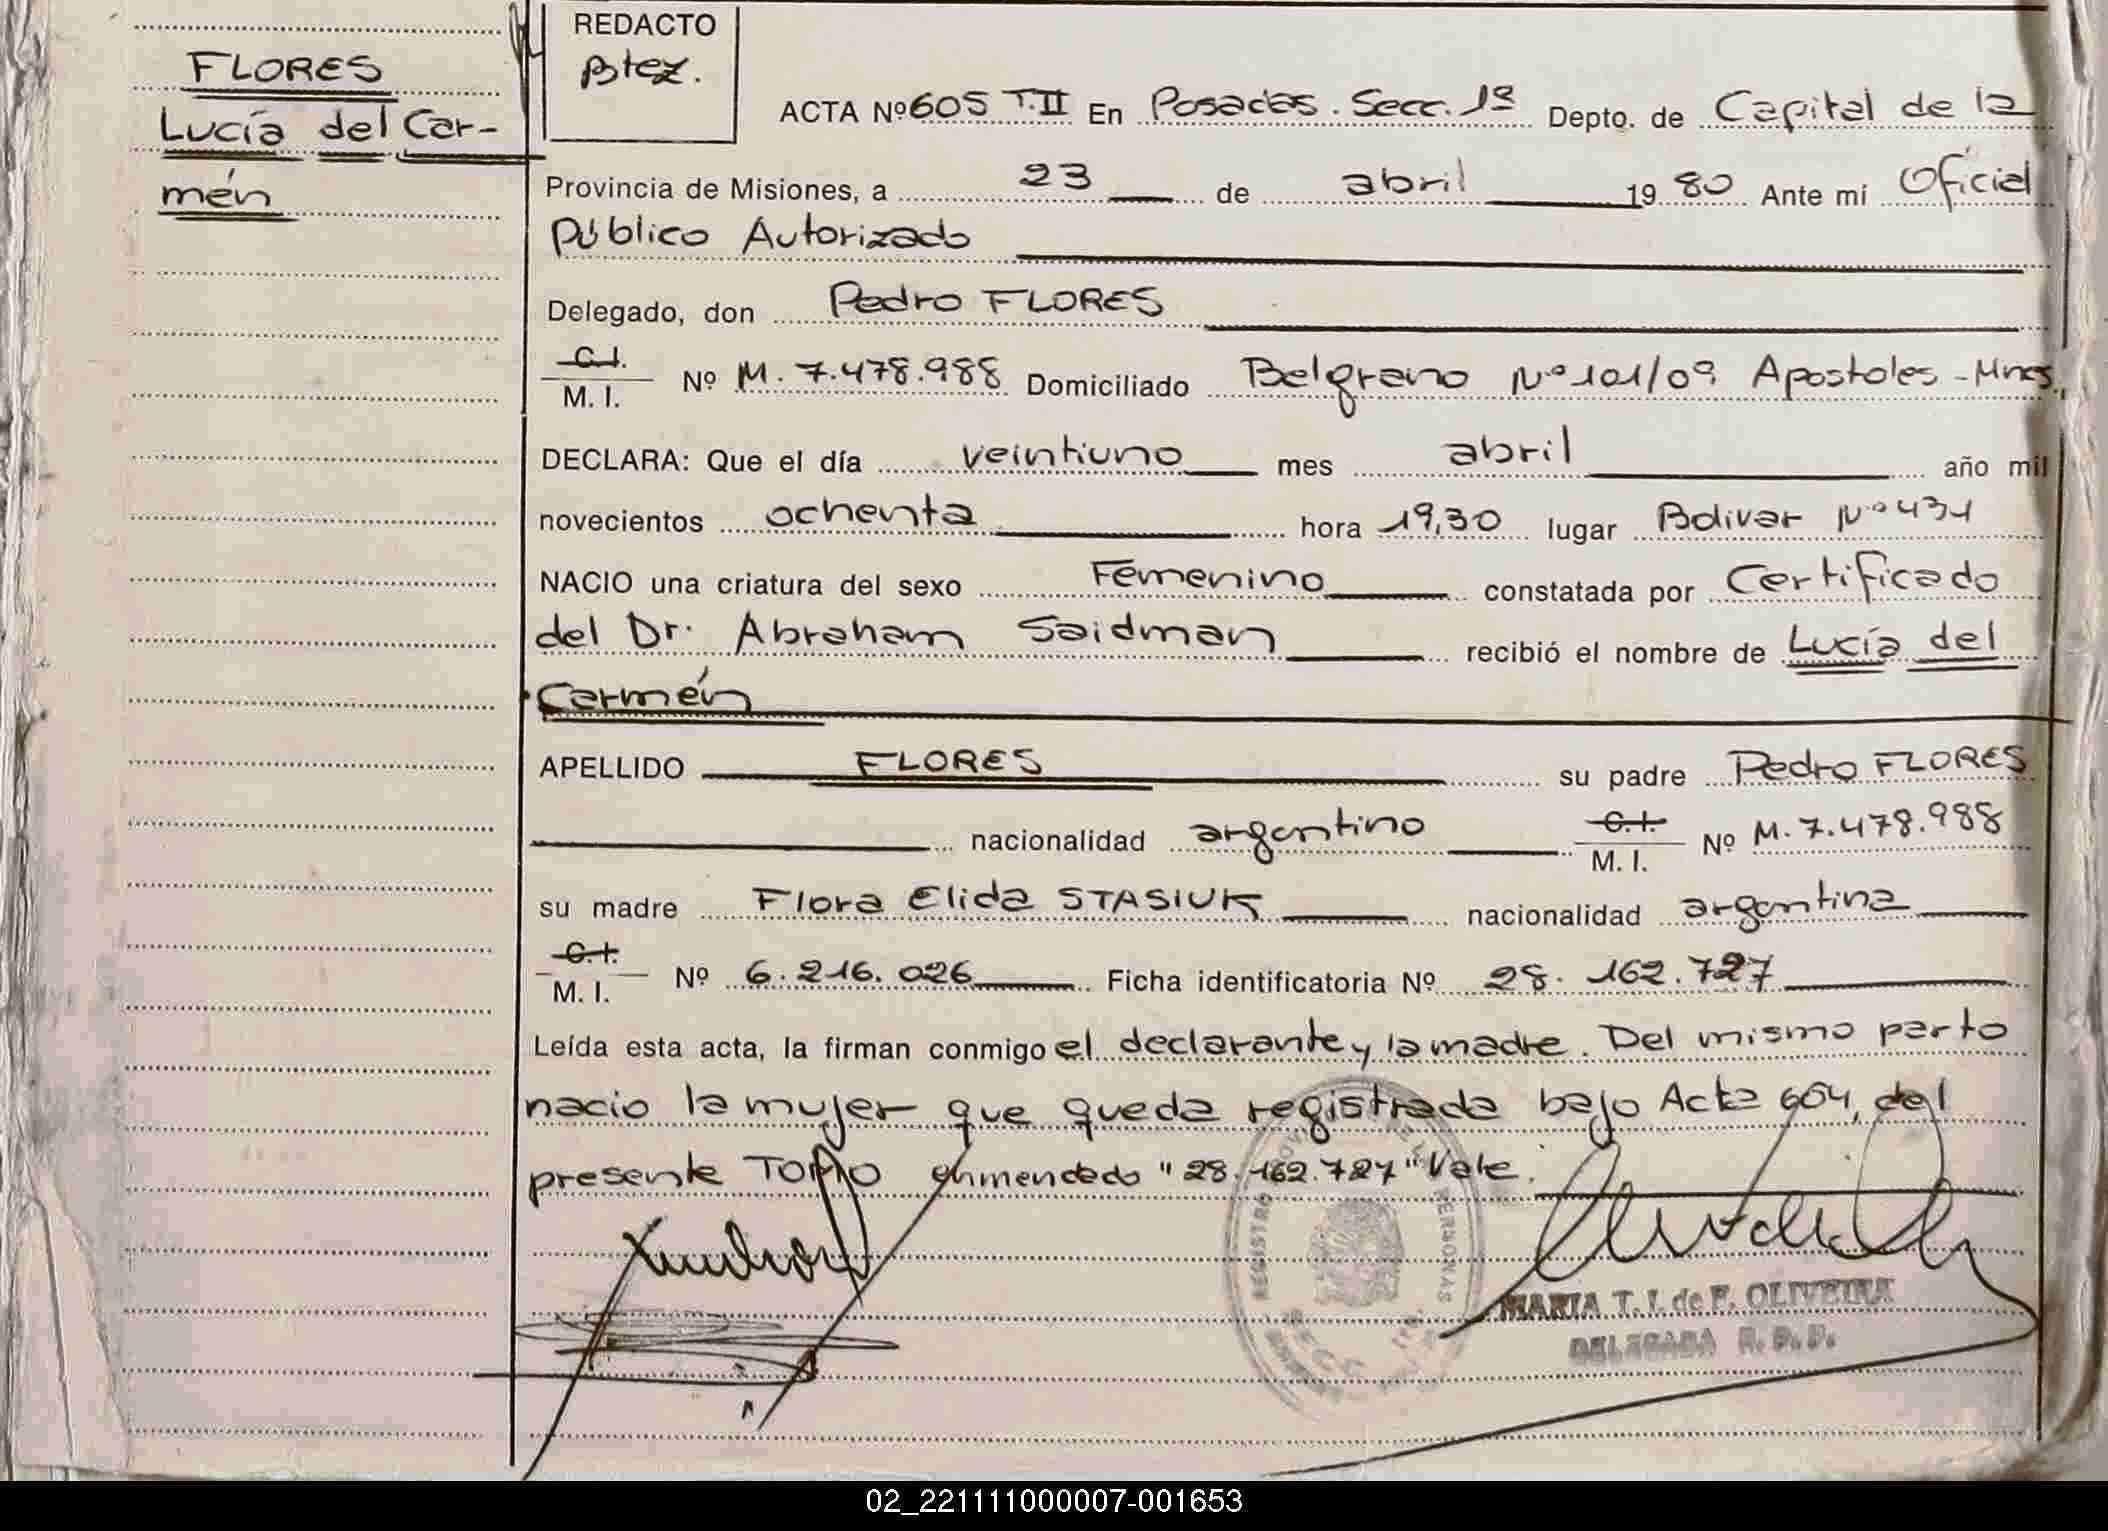 FLORES
Lucía del Car-
mén
REDACTO
Btez.
ACTA Nº 605 T.II En Posadas. Secc. 1ª Depto. de Capital de la
Provincia de Misiones, a 23 de abril 1980 Ante mí Oficial
Público Autorizado
Delegado, don Pedro FLORES
C.I.
M. I. Nº M. 7.478.988 Domiciliado Belgrano Nº 101/09 Apostoles - Mnes.
DECLARA: Que el día veintiuno mes abril año mil
novecientos ochenta hora 19,30 lugar Bolivar Nº 431
NACIO una criatura del sexo Femenino constatada por Certificado
del Dr. Abraham Saidman recibió el nombre de Lucía del
Carmén
APELLIDO FLORES su padre Pedro FLORES
nacionalidad argentino C.I. M. I. Nº M. 7.478.988
su madre Flora Elida STASIUK nacionalidad argentina
C.I.
M. I. Nº 6.216.026 Ficha identificatoria Nº 28.162.727
Leída esta acta, la firman conmigo el declarante y la madre. Del mismo parto
nacio la mujer que queda registrada bajo Acta 604, del
presente TOMO enmendado "28.162.727" Vale.
MARIA T. I. de F. OLIVEIRA
DELEGADA R. P. P.
02_221111000007-001653